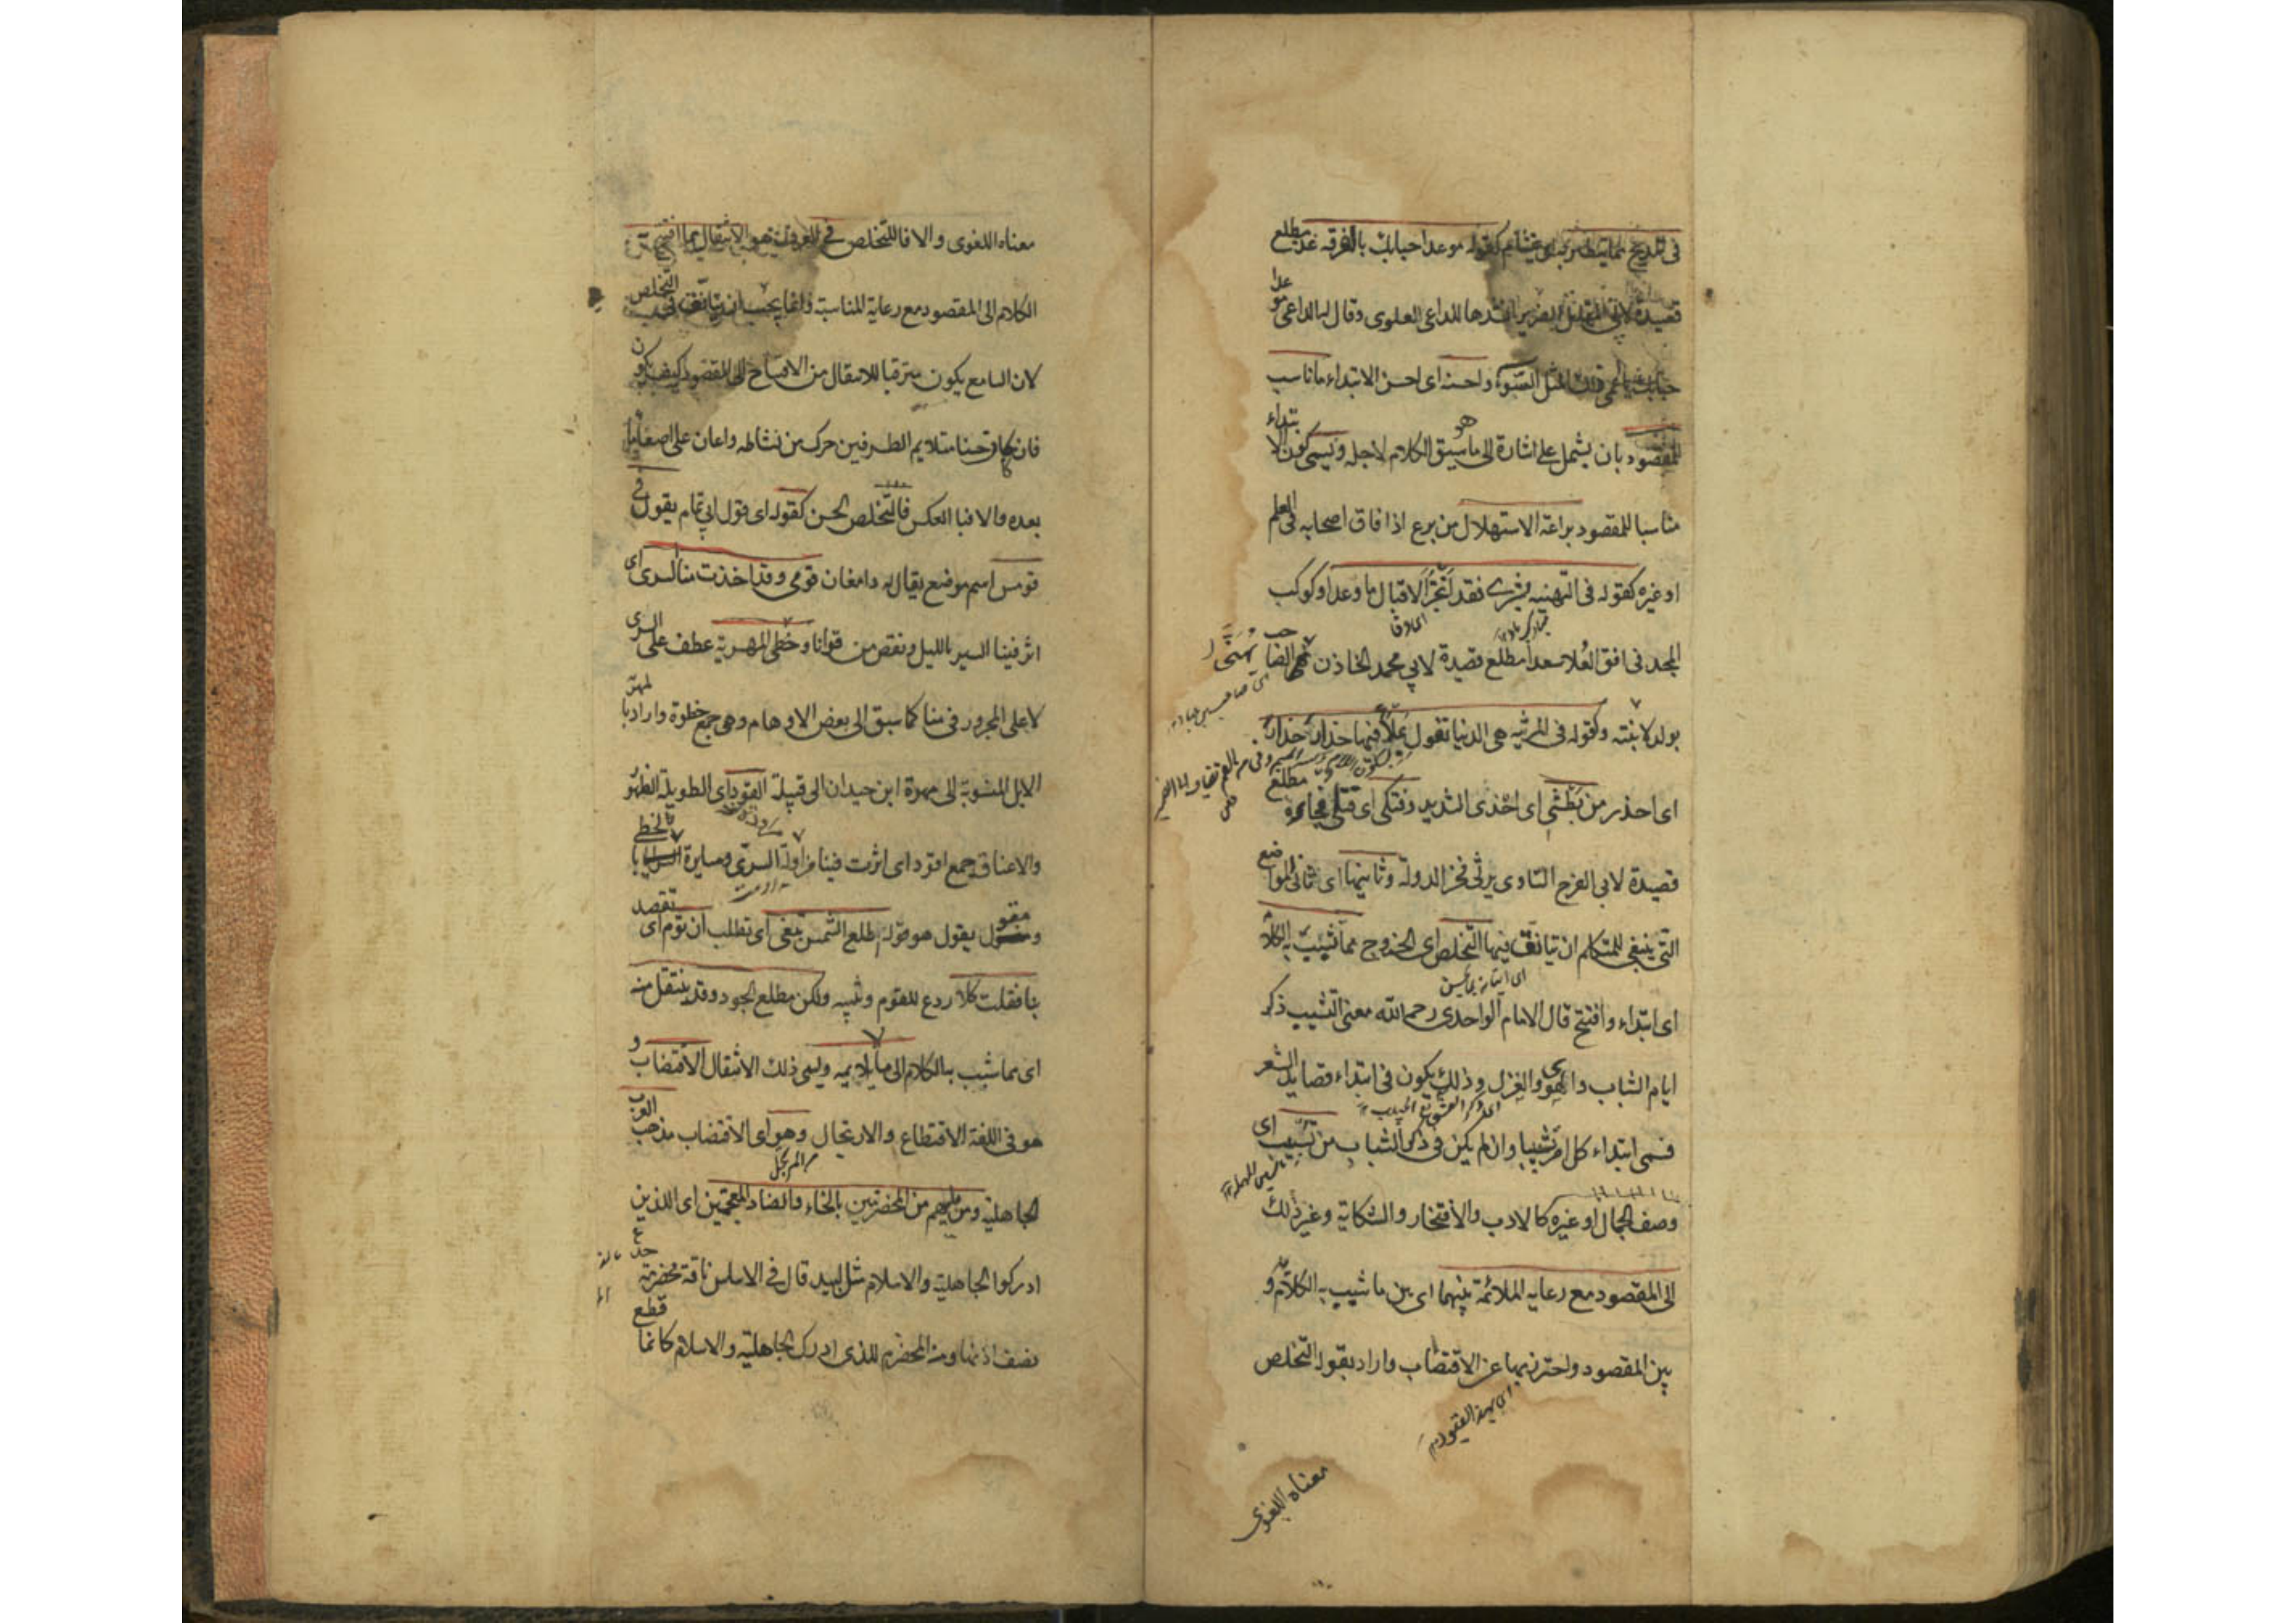 فى المديح مما يتطير به كقوله موعد احبابك بالفرقة غد مطلع
قصيدة لابن مقاتل الضرير انشدها للداعى العلوى وقال له الداعى موعد
احبابك يا اعمى ولك المثل السّوء واحسنه اى احسن الابتداء ما ناسب
المقصود بان يشمل على اشارة الى ما سيق الكلام لاجله ويسمى كون الابتداء
مناسبا للمقصود براعة الاستهلال من برع اذا فاق اصحابه فى العلم
او غيره كقوله فى التهنية بشرى فقد انجز الاقبال ما وعدا وكوكب
المجد فى افق العُلا صعدا مطلع قصيدة لابى محمد الخاذن يهنى الصاحب
بولد لابنته وكقوله فى المرثيه هى الدنيا تقول بملأ فيها حذار حذار
اى احذر من بطشى اى اخذى الشديد وفتكى اى قتلى فجاءة مطلع
قصيدة لابى الفرج السّاوى يرثى فخر الدولة وثانيها اى ثانى المواضع
التى ينبغى للمتكلم ان يتانق فيها التخلص اى الخروج مما شبب به الكلام
اى ابتداء وافتتح قال الامام الواحدى رحمه الله معنى التشبيب ذكر
ايام الشباب واللهو والغزل وذلك يكون فى ابتداء قصايد الشعر
فسمى ابتداء كل امر تشبيبا وان لم يكن فى ذكر الشباب من تشبيب اى
وصف الجمال او غيره كالادب والافتخار والشكاية وغير ذلك
الى المقصود مع رعاية الملائمة بينهما اى بين ما شبب به الكلام و
بين المقصود واحترز بهما عن الاقتضاب واراد بقوله التخلص
معناه اللغوى
معناه اللغوى والا فالتخلص فى العرف هو الانتقال مما افتتح به
الكلام الى المقصود مع رعاية المناسبة وانما يجب ان يتانق فى التخلص
لان السامع يكون مترقبا للانتقال من الافتتاح الى المقصود كيف يكون
فان كان حسنا متلايم الطرفين حرك من نشاطه واعان على اصغاء ما
بعده والا فبالعكس فالتخلص الحسن كقوله اى قول ابى تمام يقول فى
قومس اسم موضع يقال له دامغان قومى وقد اخذت منا السرى اى
اثر فينا السير بالليل ونقص من قوانا وخطى المهرية عطف على السرى
لا على المجرور فى منا كما سبق الى بعض الاوهام وهى جمع خطوة واراد بالمهرية
الابل المنسوبة الى مهرة ابن حيدان الى قبيلة القود اى الطويلة الظهور
والاعناق جمع اقود اى اثرت فينا مزاولة السرى ومسايرة المطايا بالخطى
ومقول يقول هو قوله اطلع الشمس تبغى اى تطلب ان تؤم اى تقصد
بنا فقلت كلا ردع للقوم وتنبيه ولكن مطلع الجود وقد ينتقل منه
اى مما شبب به الكلام الى ما لا يلايمه ويسمى ذلك الانتقال الاقتضاب و
هو فى اللغة الاقتطاع والارتجال وهو اى الاقتضاب مذهب العرب
الجاهلية ومن يليهم من المخضرمين بالخاء والضاد المعجمتين اى الذين
ادركوا الجاهلية والاسلام مثل لبيد قال فى الاساس ناقة مخضرمة جدع
نصف اذنها ومنه المخضرم للذى ادرك الجاهلية والاسلام كانما قطع